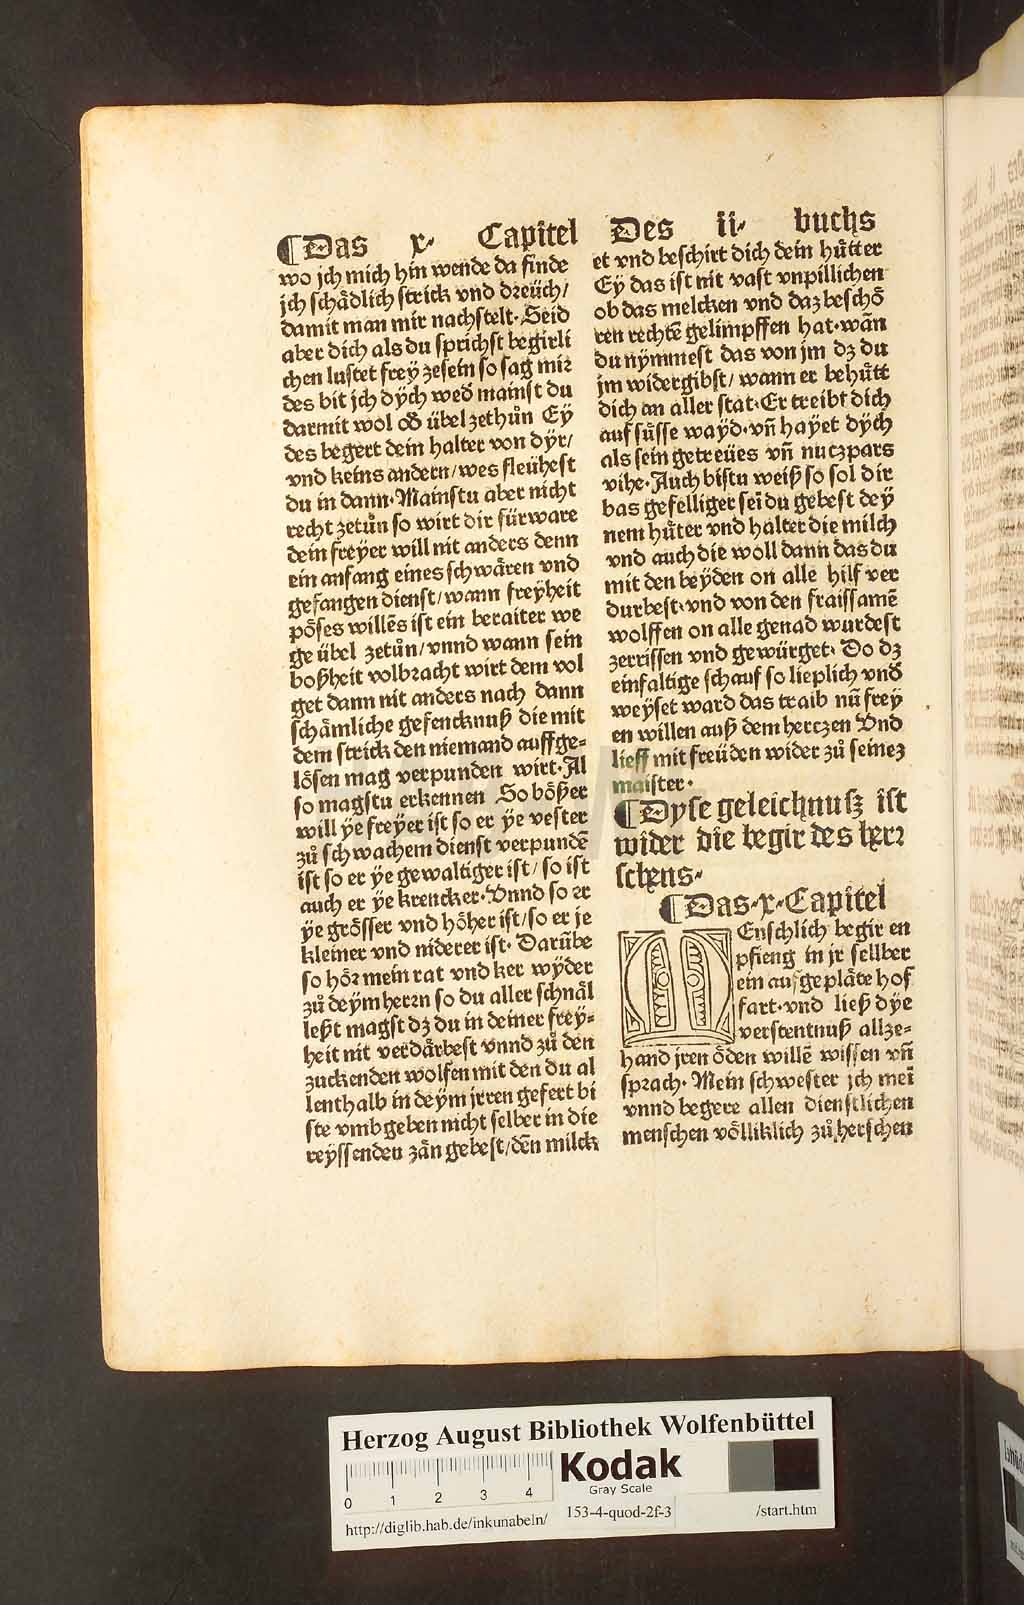 ¶Das x· Capitel Des ii· buchs
wo jch mich hin wende da finde
jch schådlich strick vnd dreüch/
damit man mir nachstelt· Seid
aber dich als du sprichst begirli
chen lustet frey zesein so sag mir
des bit jch dÿch wed᷑ mainst du
darmit wol od᷑ übel zethůn Eÿ
des begert dein halter von dÿr/
vnd keins andern/wes fleühest
du in dann· Mainstu aber nicht
recht zetůn so wirt dir fürware
dein freÿer will nit anders denn
ein anfang eines schwåren vnd
gefangen dienst/wann freÿheit
pôses willēs ist ein beraiter we
ge übel zetůn/vnnd wann sein
boßheit volbracht wirt dem vol
get dann nit anders nach dann
schåmliche gefencknuß die mit
dem strick den niemand auffge=
lôsen mag verpunden wirt· Al
so magstu erkennen So bôßer
will ÿe freÿer ist so er ÿe vester
zů schwachem dienst verpundē
ist so er ÿe gewaltiger ist/so ist
auch er ÿe krencker· Vnnd so er
ÿe grôsser vnd hôher ist/so er je
kleiner vnd niderer ist· Darūbe
so hôr mein rat vnd ker wÿder
zů deÿm herrn so du aller schnål
leßt magst dz du in deiner freÿ=
heit nit verdårbest vnnd zů den
zuckenden wolfen mit den du al
lenthalb in deÿm jrren gefert bi
ste vmbgeben nicht selber in die
reÿssenden zån gebest/dēn milck
et vnd beschirt dich dein hůtter
Eÿ das ist nit vast vnpillichen
ob das melcken vnd daz beschô
ren rechtē gelimpffen hat·wān
du nÿmmest das von jm dz du
jm widergibst/wann er behůtt
dich an aller stat· Er treibt dich
auf sůsse waÿd·vn̄ haÿet dÿch
als sein getreües vn̄ nuczpars
vihe· Auch bistu weiß so sol dir
bas gefelliger sei̅ du gebest deÿ
nem hůter vnd halter die milch
vnd auch die woll dann das du
mit den beÿden on alle hilf ver
durbest·vnd von den fraissamē
wolffen on alle genad wurdest
zerrissen vnd gewürget· Do dz
einfaltige schauf so lieplich vnd᷑
weÿset ward das traib nū freÿ
en willen auß dem herczen Vnd
lieff mit freüden wider zů seinez
maister·
¶Dyse geleichnusz ist
wider die begir des herr
schens·
¶Das·x·Capitel
MEnschlich begir en
pfieng in jr sellber
ein aufgeplåte hof
fart·vnd ließ dÿe
verstentnuß allze=
hand jren ôden willē wissen vn̄
sprach· Mein schwester jch mei̅
vnnd begere allen dienstlichen
menschen vôlliklich zů herschen
Herzog August Bibliothek Wolfenbüttel
0 1 2 3 4
Kodak
Gray Scale
http://diglib.hab.de/inkunabeln/ 153-4-quod-2f-3 /start.htm